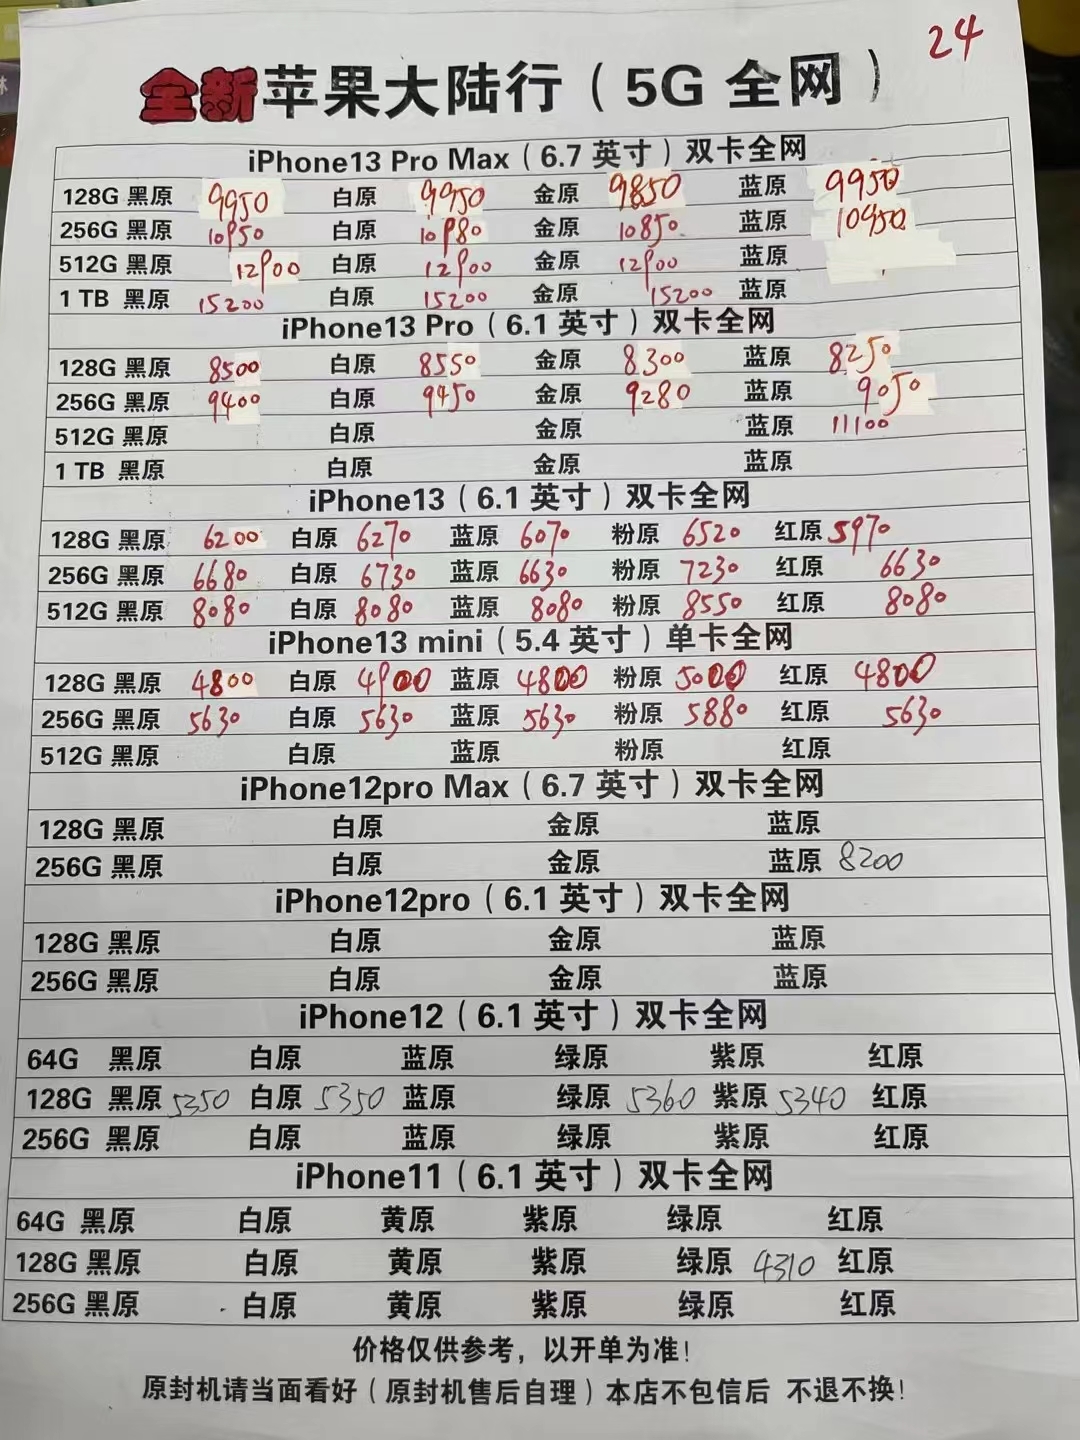 24
全新苹果大陆行（5G 全网）
iPhone13 Pro Max（6.7 英寸）双卡全网
128G 黑原 9950 白原 9950 金原 9850 蓝原 9950
256G 黑原 10950 白原 10980 金原 10850 蓝原 10950
512G 黑原 12900 白原 12900 金原 12900 蓝原
1 TB 黑原 15200 白原 15200 金原 15200 蓝原
iPhone13 Pro（6.1 英寸）双卡全网
128G 黑原 8500 白原 8550 金原 8300 蓝原 8250
256G 黑原 9400 白原 9450 金原 9280 蓝原 9050
512G 黑原 白原 金原 蓝原 11100
1 TB 黑原 白原 金原 蓝原
iPhone13（6.1 英寸）双卡全网
128G 黑原 6200 白原 6270 蓝原 6070 粉原 6520 红原 5970
256G 黑原 6680 白原 6730 蓝原 6630 粉原 7230 红原 6630
512G 黑原 8080 白原 8080 蓝原 8080 粉原 8550 红原 8080
iPhone13 mini（5.4 英寸）单卡全网
128G 黑原 4800 白原 4900 蓝原 4800 粉原 5000 红原 4800
256G 黑原 5630 白原 5630 蓝原 5630 粉原 5880 红原 5630
512G 黑原 白原 蓝原 粉原 红原
iPhone12pro Max（6.7 英寸）双卡全网
128G 黑原 白原 金原 蓝原
256G 黑原 白原 金原 蓝原 8200
iPhone12pro（6.1 英寸）双卡全网
128G 黑原 白原 金原 蓝原
256G 黑原 白原 金原 蓝原
iPhone12（6.1 英寸）双卡全网
64G 黑原 白原 蓝原 绿原 紫原 红原
128G 黑原 5350 白原 5350 蓝原 绿原 5360 紫原 5340 红原
256G 黑原 白原 蓝原 绿原 紫原 红原
iPhone11（6.1 英寸）双卡全网
64G 黑原 白原 黄原 紫原 绿原 红原
128G 黑原 白原 黄原 紫原 绿原 4310 红原
256G 黑原 白原 黄原 紫原 绿原 红原
价格仅供参考，以开单为准！
原封机请当面看好（原封机售后自理）本店不包信后 不退不换！